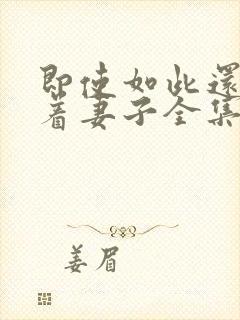 即使如此還
着妻子全集
姜眉